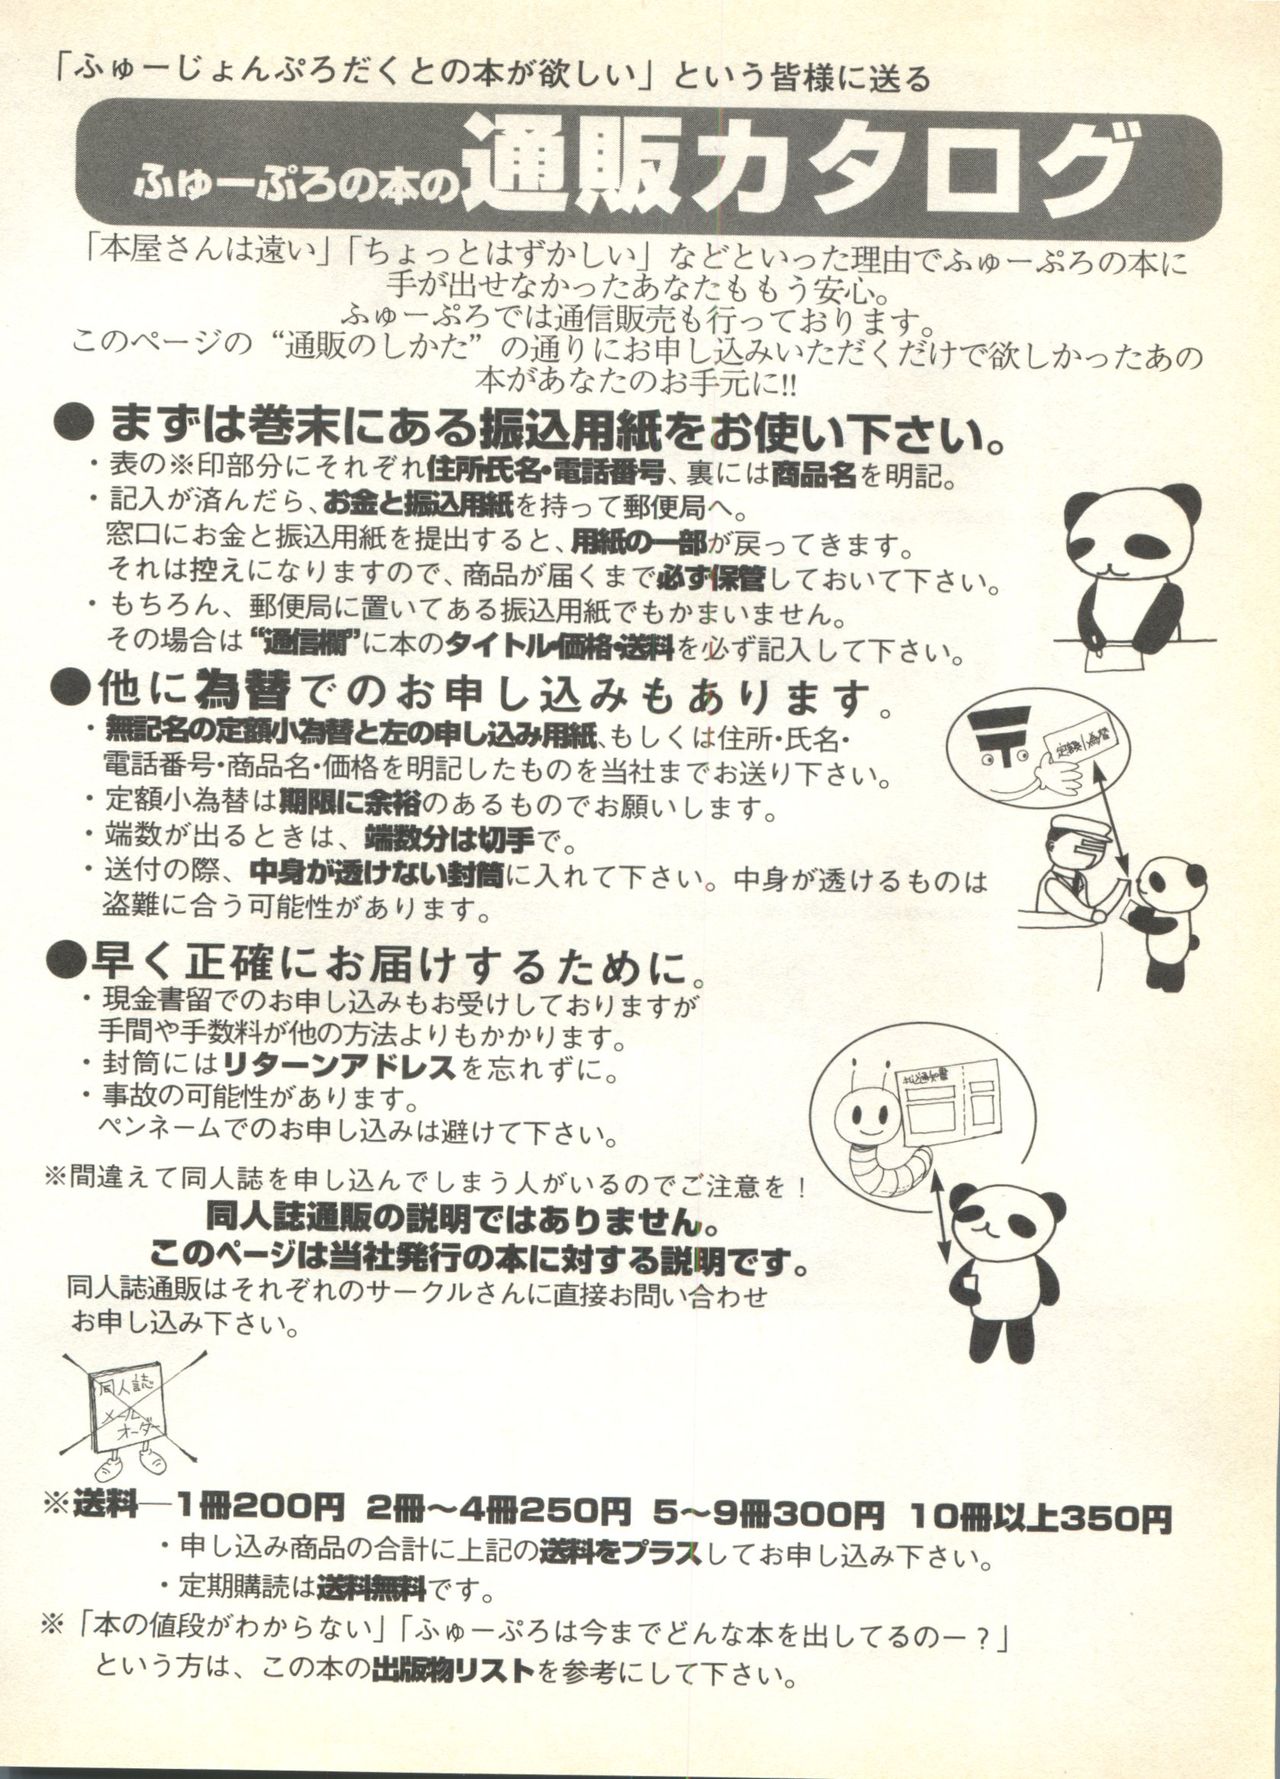 「ふゅーじょんぷろだくとの本が欲しい」という皆様に送る
ふゅーぷろの本の通販カタログ
「本屋さんは遠い」「ちょっとはずかしい」などといった理由でふゅーぷろの本に
手が出せなかったあなたももう安心。
ふゅーぷろでは通信販売も行っております。
このページの“通販のしかた”の通りにお申し込みいただくだけで欲しかったあの
本があなたのお手元に!!
●まずは巻末にある振込用紙をお使い下さい。
・表の※印部分にそれぞれ住所氏名・電話番号、裏には商品名を明記。
・記入が済んだら、お金と振込用紙を持って郵便局へ。
窓口にお金と振込用紙を提出すると、用紙の一部が戻ってきます。
それは控えになりますので、商品が届くまで必ず保管しておいて下さい。
・もちろん、郵便局に置いてある振込用紙でもかまいません。
その場合は“通信欄”に本のタイトル・価格・送料を必ず記入して下さい。
●他に為替でのお申し込みもあります。
・無記名の定額小為替と左の申し込み用紙、もしくは住所・氏名・
電話番号・商品名・価格を明記したものを当社までお送り下さい。
・定額小為替は期限に余裕のあるものでお願いします。
・端数が出るときは、端数分は切手で。
・送付の際、中身が透けない封筒に入れて下さい。中身が透けるものは
盗難に合う可能性があります。
〒
定額小為替
●早く正確にお届けするために。
・現金書留でのお申し込みもお受けしておりますが
手間や手数料が他の方法よりもかかります。
・封筒にはリターンアドレスを忘れずに。
・事故の可能性があります。
ペンネームでのお申し込みは避けて下さい。
払込通知書
※間違えて同人誌を申し込んでしまう人がいるのでご注意を！
同人誌通販の説明ではありません。
このページは当社発行の本に対する説明です。
同人誌通販はそれぞれのサークルさんに直接お問い合わせ
お申し込み下さい。
同人誌
メール
オーダー
※送料―1冊200円 2冊〜4冊250円 5〜9冊300円 10冊以上350円
・申し込み商品の合計に上記の送料をプラスしてお申し込み下さい。
・定期購読は送料無料です。
※「本の値段がわからない」「ふゅーぷろは今までどんな本を出してるのー？」
という方は、この本の出版物リストを参考にして下さい。